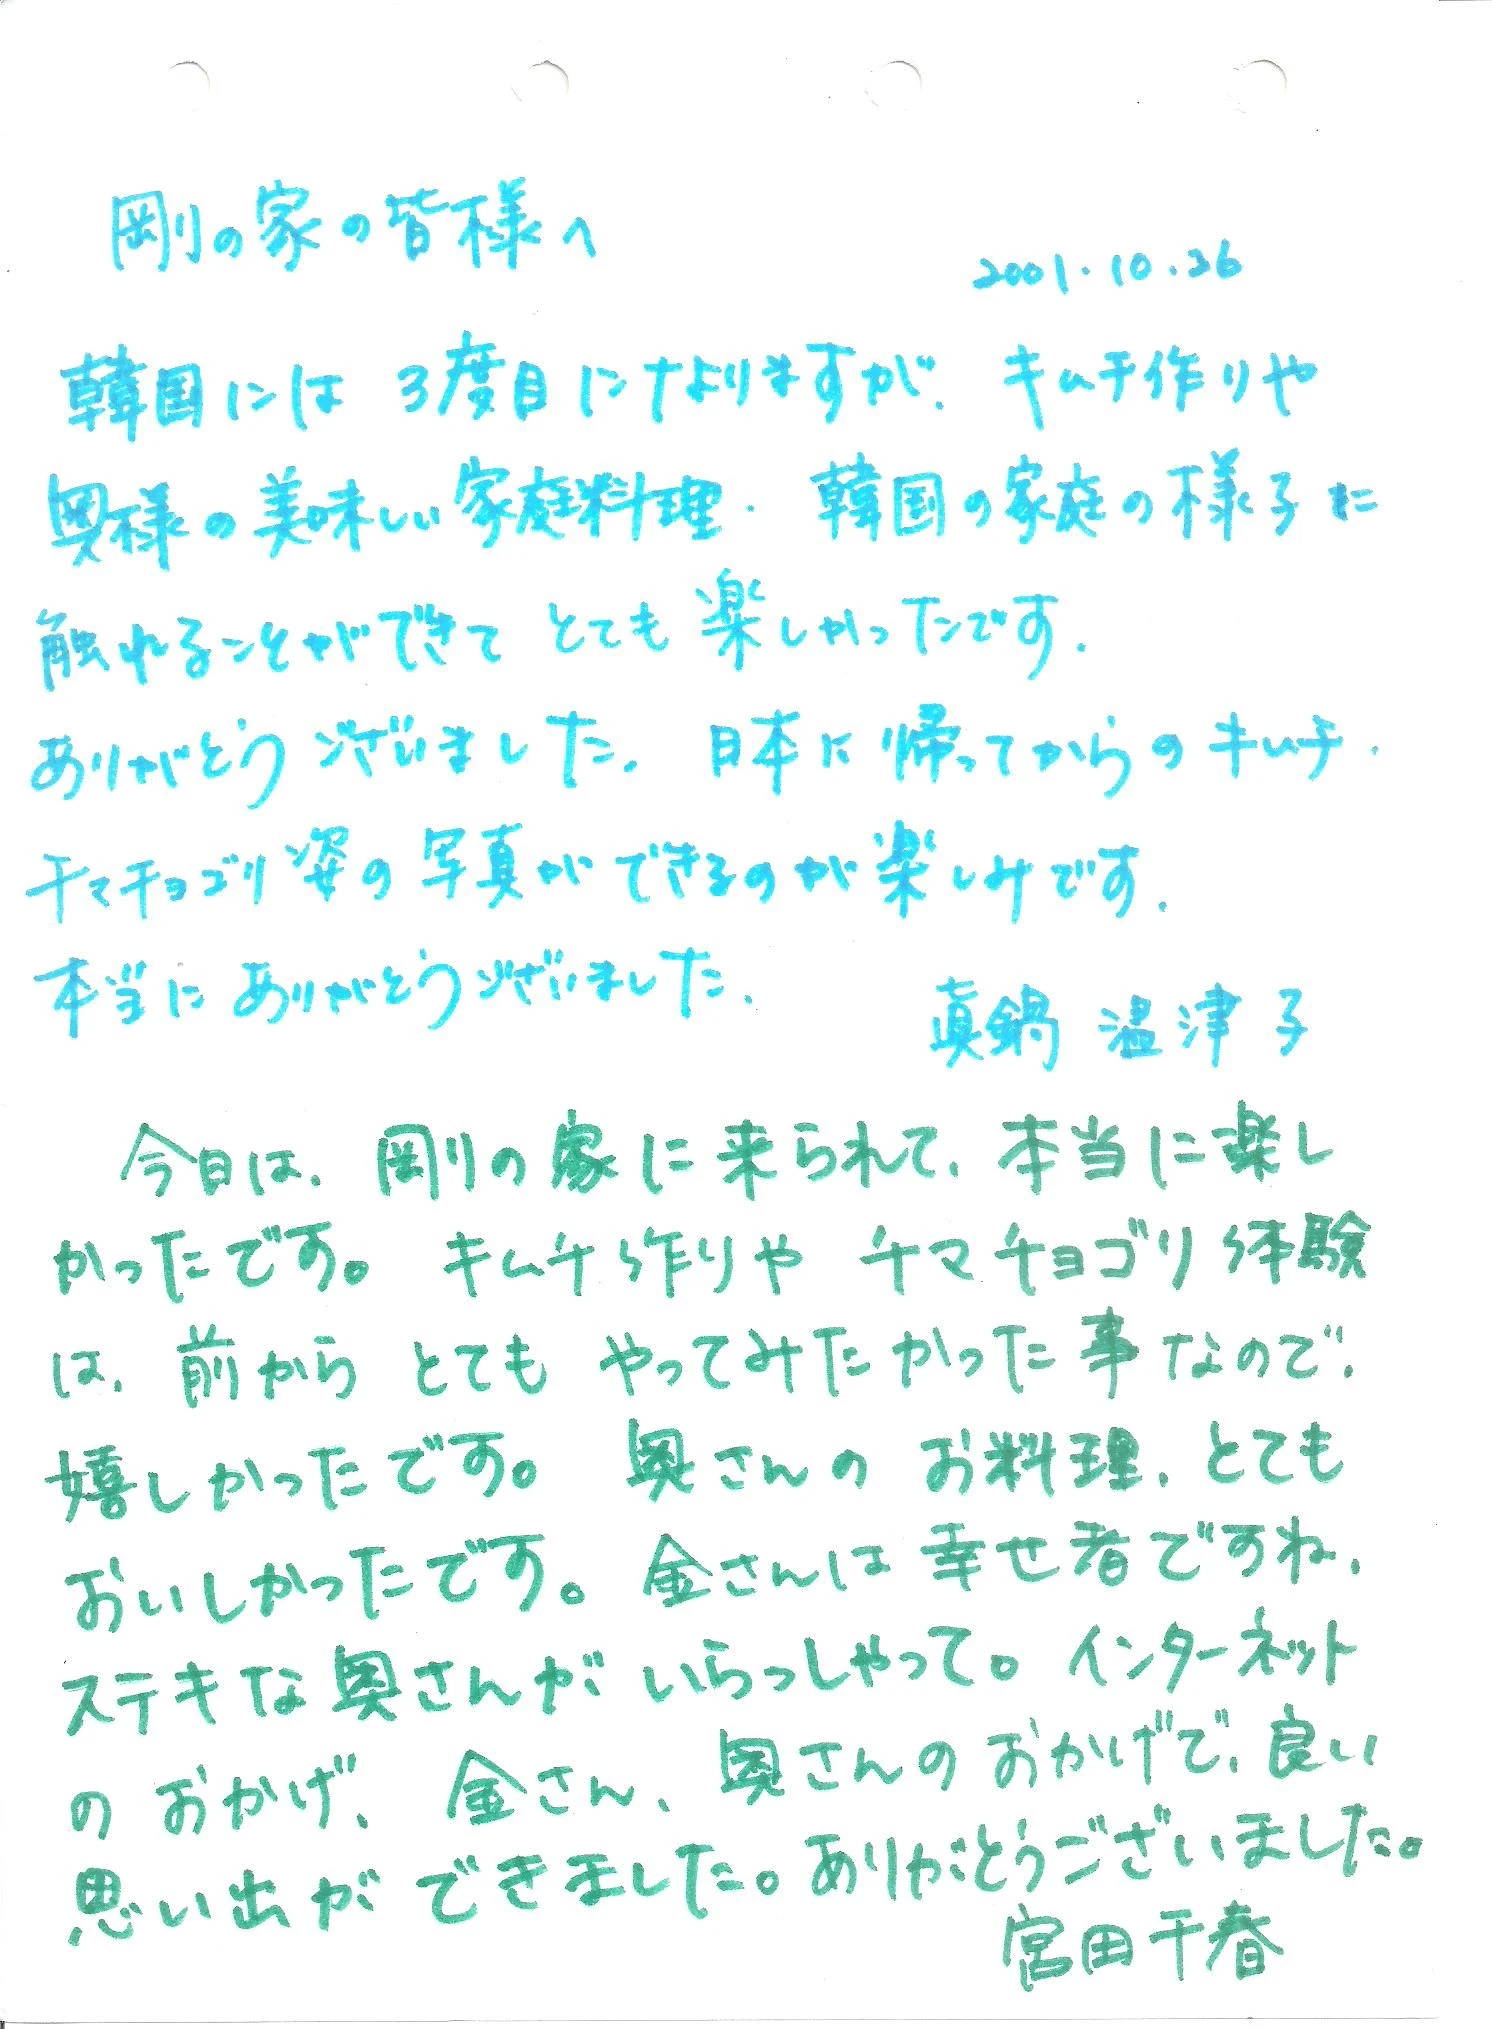 剛の家の皆様へ
2001.10.26
韓国には3度目になりますが、キムチ作りや
奥様の美味しい家庭料理、韓国の家庭の様子に
触れることができてとても楽しかったです。
ありがとうございました。日本に帰ってからのキムチ、
チマチョゴリ姿の写真ができるのが楽しみです。
本当にありがとうございました。
真鍋 温津子
今日は、剛の家に来られて、本当に楽し
かったです。キムチ作りやチマチョゴリ体験
は、前からとてもやってみたかった事なので、
嬉しかったです。奥さんのお料理、とても
おいしかったです。金さんは幸せ者ですね、
ステキな奥さんがいらっしゃって。インターネット
のおかげ、金さん、奥さんのおかげで、良い
思い出ができました。ありがとうございました。
宮田千春